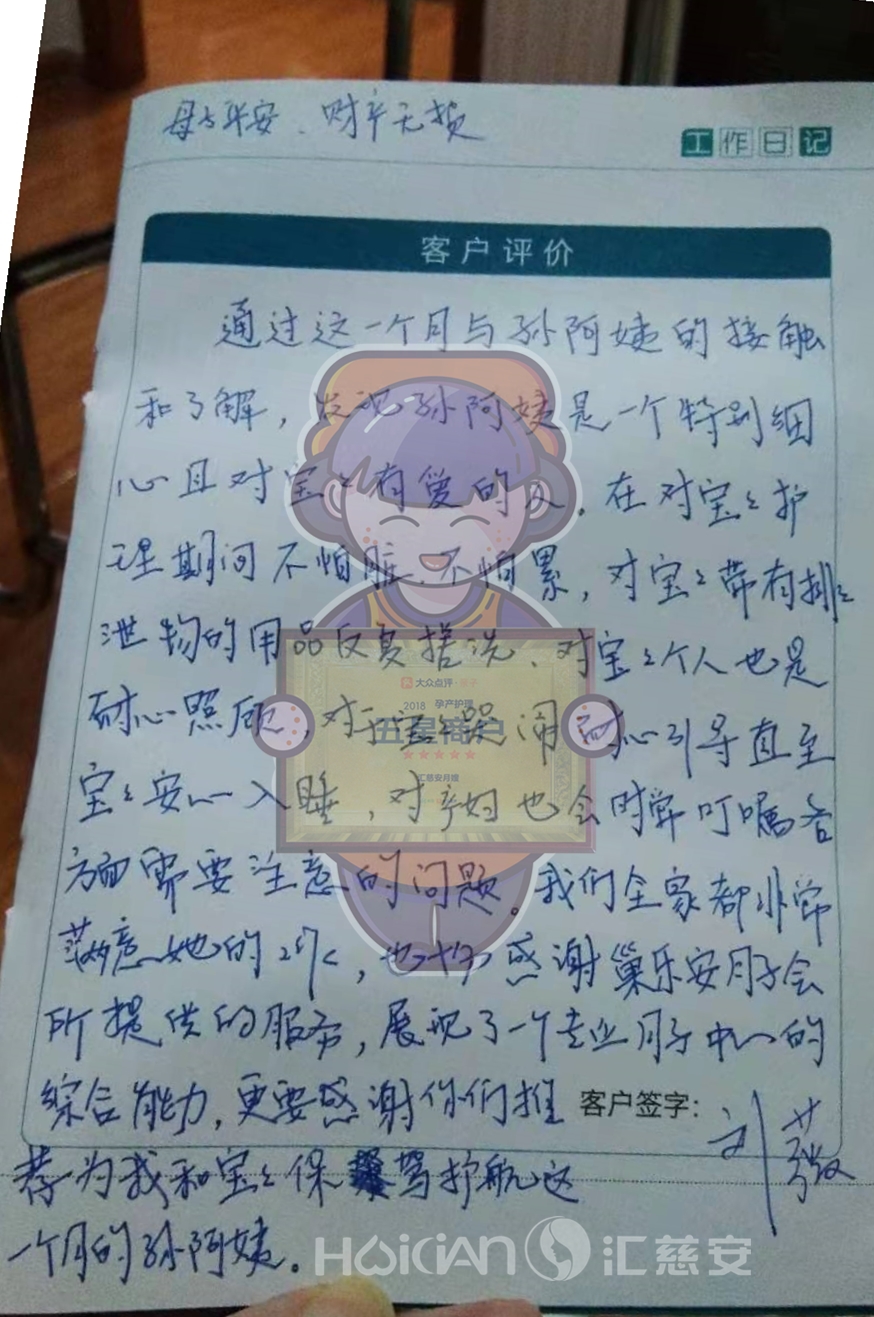 母子平安、财产无损
工作日记
客户评价
通过这一个月与孙阿姨的接触
和了解，发现孙阿姨是一个特别细
心且对宝宝有爱的人。在对宝宝护
理期间不怕脏、不怕累，对宝宝带有排
泄物的用品反复搓洗、对宝宝个人也是
耐心照顾，对于宝宝哭闹耐心引导直至
宝宝安心入睡，对产妇也会时常叮嘱各
方面需要注意的问题。我们全家都非常
满意她的，也感谢巢乐安月子会
所提供的服务，展现了一个专业月子中心的
综合能力，更要感谢你们推
客户签字：
刘
荐为我和宝宝保驾护航这
一个月的孙阿姨。
大众点评·亲子
2018 孕产护理
五星商户
汇慈安月嫂
HOICIAN 汇慈安